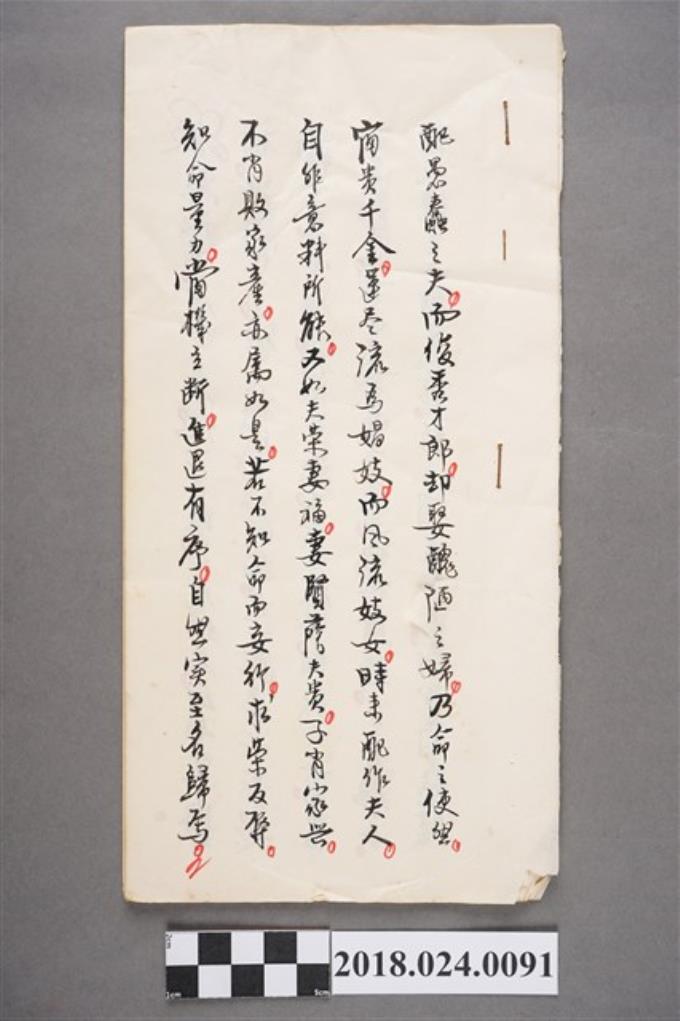 配愚蠢之夫。而俊秀才郎。却娶醜陋之婦。乃命之使然。
富貴千金。運尽流為娼妓。而風流妓女。時来配作夫人。
自作意料所能。又如夫荣妻福。妻賢蔭夫貴。子肖家興。
不肖敗家產。亦属如是。若不知命而妄行。求荣反弊。
知命量力。當機立断。進退有序。自然实至名歸焉。
2cm
1cm
5cm
2018.024.0091